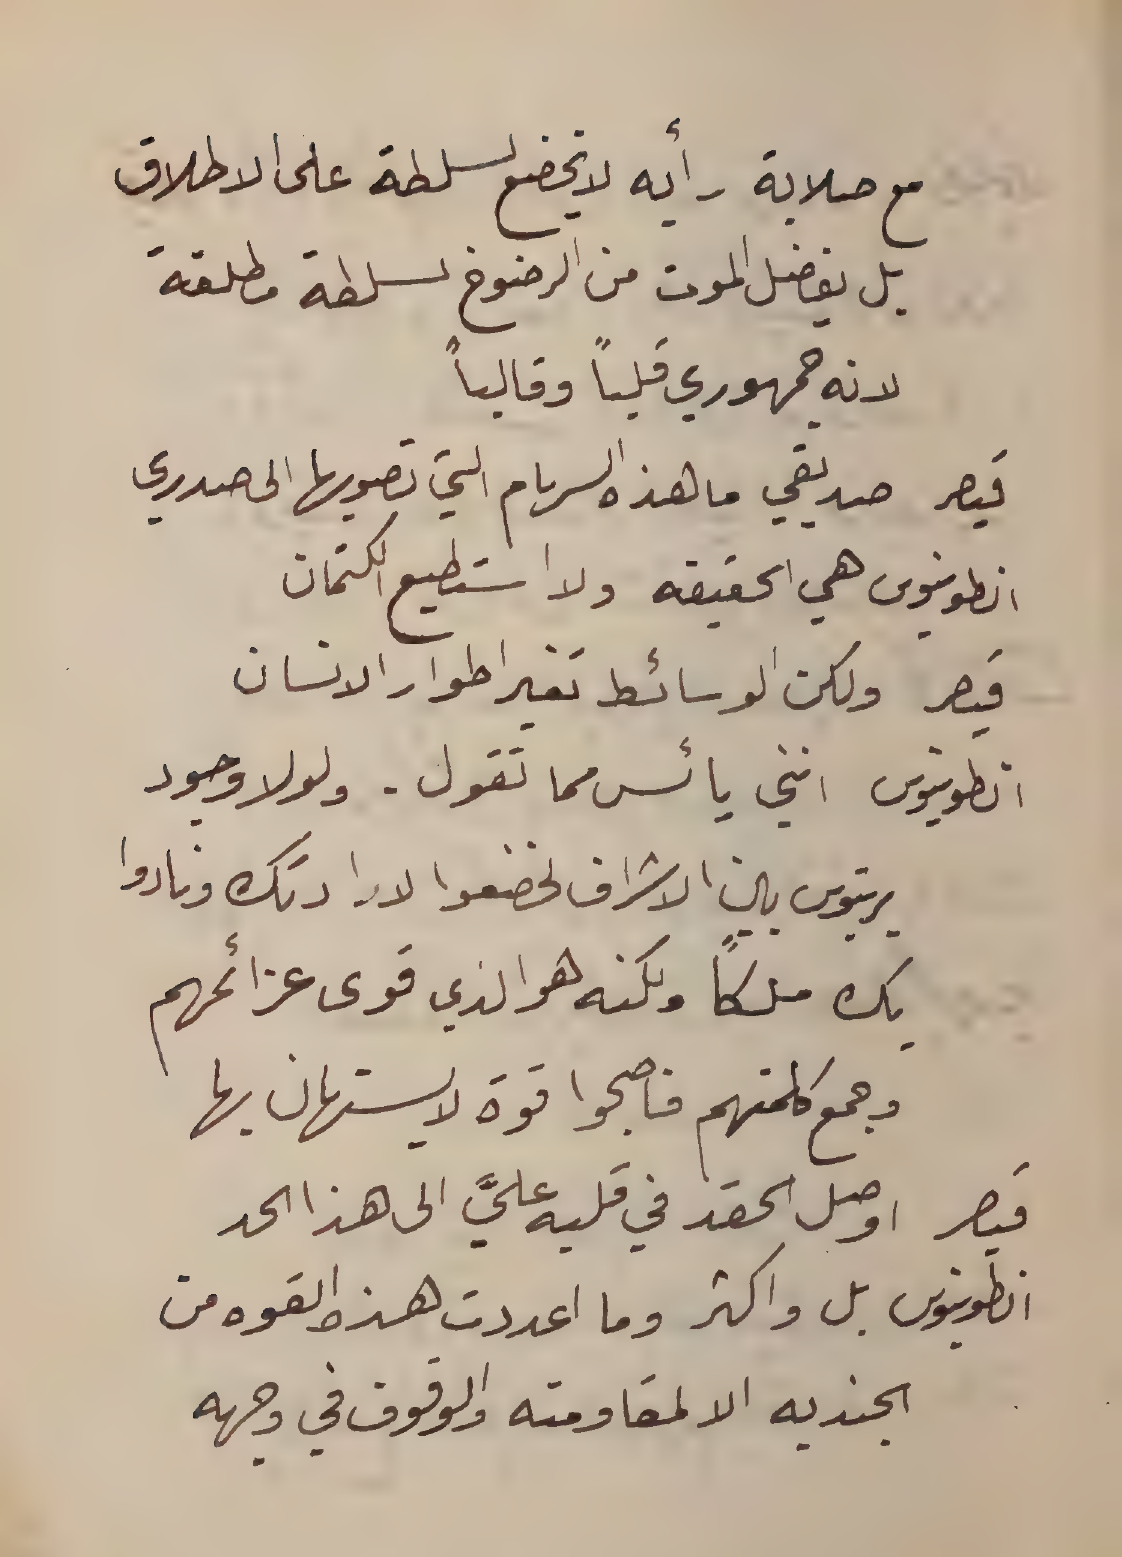 مع صلابة رأيه لا تخضع لسلطة على الاطلاق
بل يفضل الموت من الرضوخ لسلطة مطلقة
لانه جمهوري قلباً وقالباً
قيصر صديقي ما هذه السهام التي تصوبها الى صدري
انطونيوس هي الحقيقه ولا استطيع الكتمان
قيصر ولكن الوسائط تغير اطوار الانسان
انطونيوس انني يائس مما تقول . ولولا وجود
بريتوس بين الاشراف لخضعوا لارادتك ونادوا
بك ملكاً ولكنه هو الذي قوى عزائمهم
وجمع كلمتهم فاصبحوا قوة لا يستهان بها
قيصر اوصل الحقد في قلبه عليَّ الى هذا الحد
انطونيوس بل واكثر وما اعددت هذه القوه من
الجنديه الا لمقاومته والوقوف في وجهه